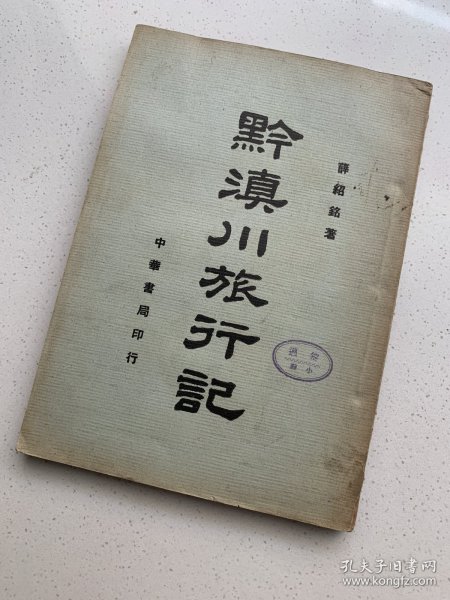 薛紹銘著
黔滇川旅行記
中華書局印行
孔夫子旧书网
www.kongfz.com